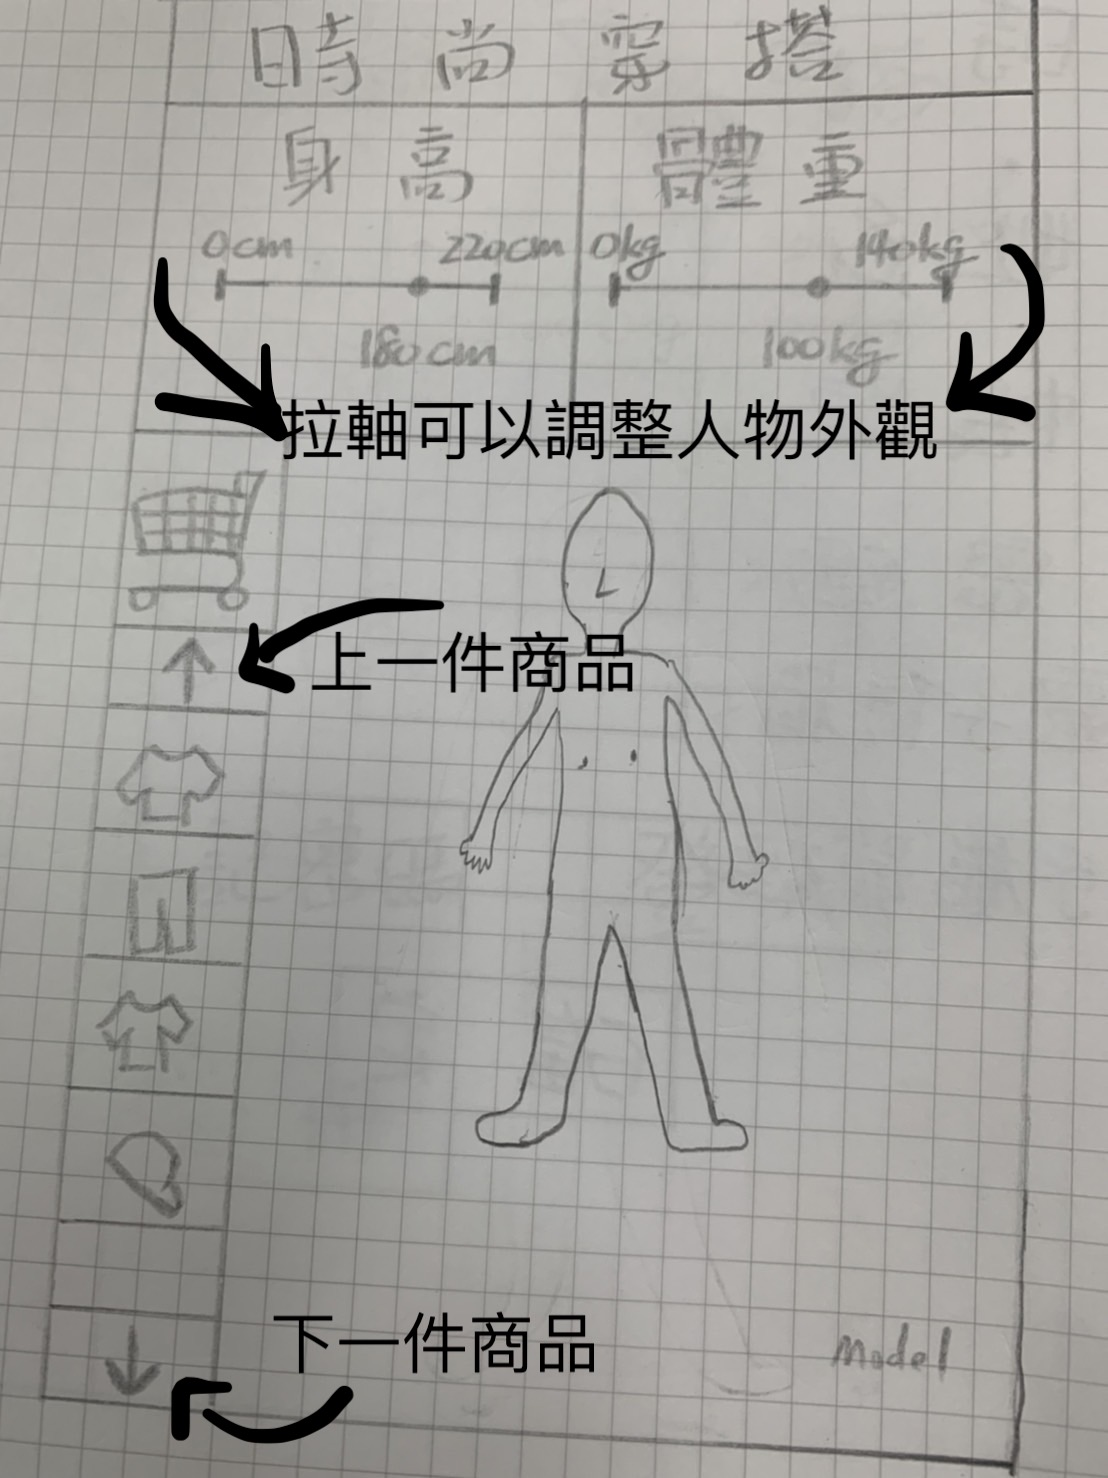 時尚穿搭
身高 體重
0cm 220cm 0kg 140kg
180cm 100kg
拉軸可以調整人物外觀
上一件商品
下一件商品
Model